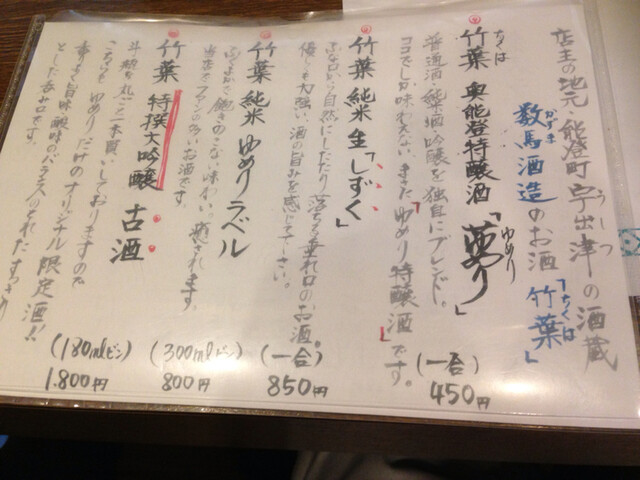 店主の地元・能登町宇出津の酒蔵
うしつ
数馬酒造のお酒「竹葉」
かずま
ちくは
竹葉 奥能登特醸酒「夢り」
ちくは
ゆめり
普通酒・純米酒・吟醸を独自にブレンド。
ココでしか味わえない、まさに「ゆめり特醸酒」です。
(一合)
450円
竹葉 純米 生「しずく」
ふなロから自然にしたたり落ちる垂れ口のお酒。
優しくも力強い、酒の旨みを感じて下さい。
(一合)
850円
竹葉 純米 ゆめりラベル
ふくよかで飽きのこない味わい。癒されます。
当店でファンの多いお酒です。
(300mlビン)
800円
竹葉 特撰大吟醸 古酒
斗瓶を丸ごと一本買いしておりますので
こちらも ゆめりだけのオリジナル限定酒!!
香りよく旨味・酸味のバランスのとれたすっきり
とした呑み口です。
(180mlビン)
1.800円